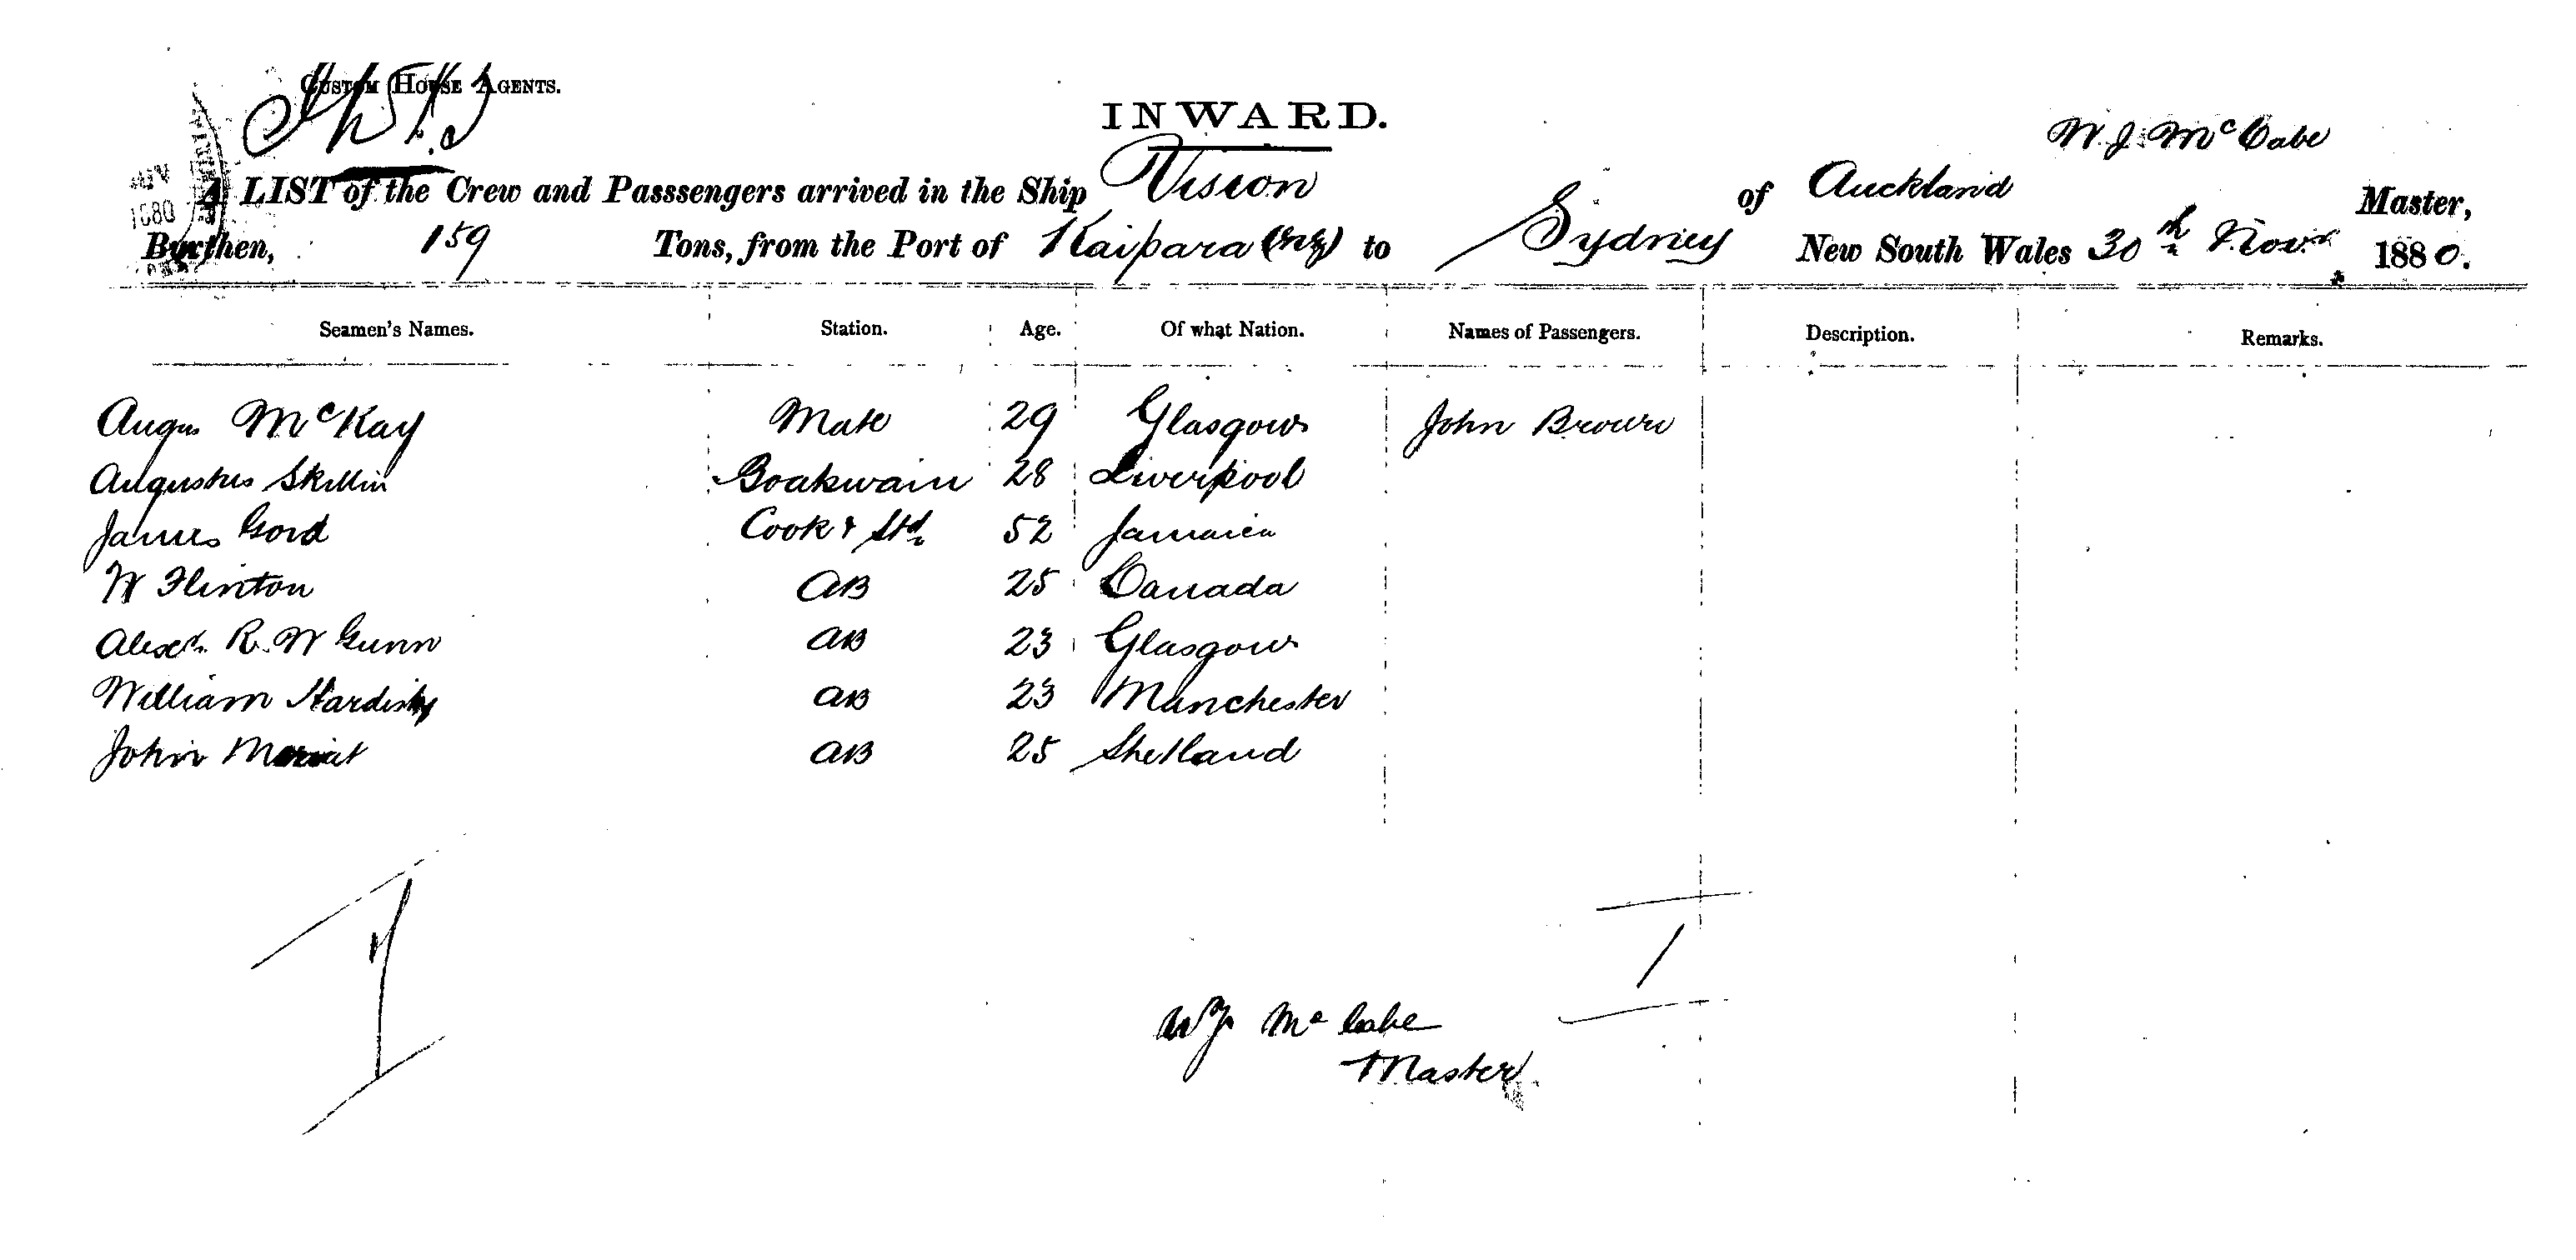 CUSTOM HOUSE AGENTS.
INWARD.
W. J. McCabe
A LIST of the Crew and Passsengers arrived in the Ship Vision of Auckland Master,
Burthen, 159 Tons, from the Port of Kaipara (NZ) to Sydney New South Wales 30th Novr 1880.
Seamen's Names. Station. Age. Of what Nation. Names of Passengers. Description. Remarks.
Angus McKay Mate 29 Glasgow John Brown
Augustus Skillin Boatswain 28 Liverpool
James Gord Cook & Std. 52 Jamaica
W Flinton AB 25 Canada
Alexr. R. W Gunn AB 23 Glasgow
William AB 23 Manchester
John AB 25 Shetland
7
1
WJ McCabe
Master